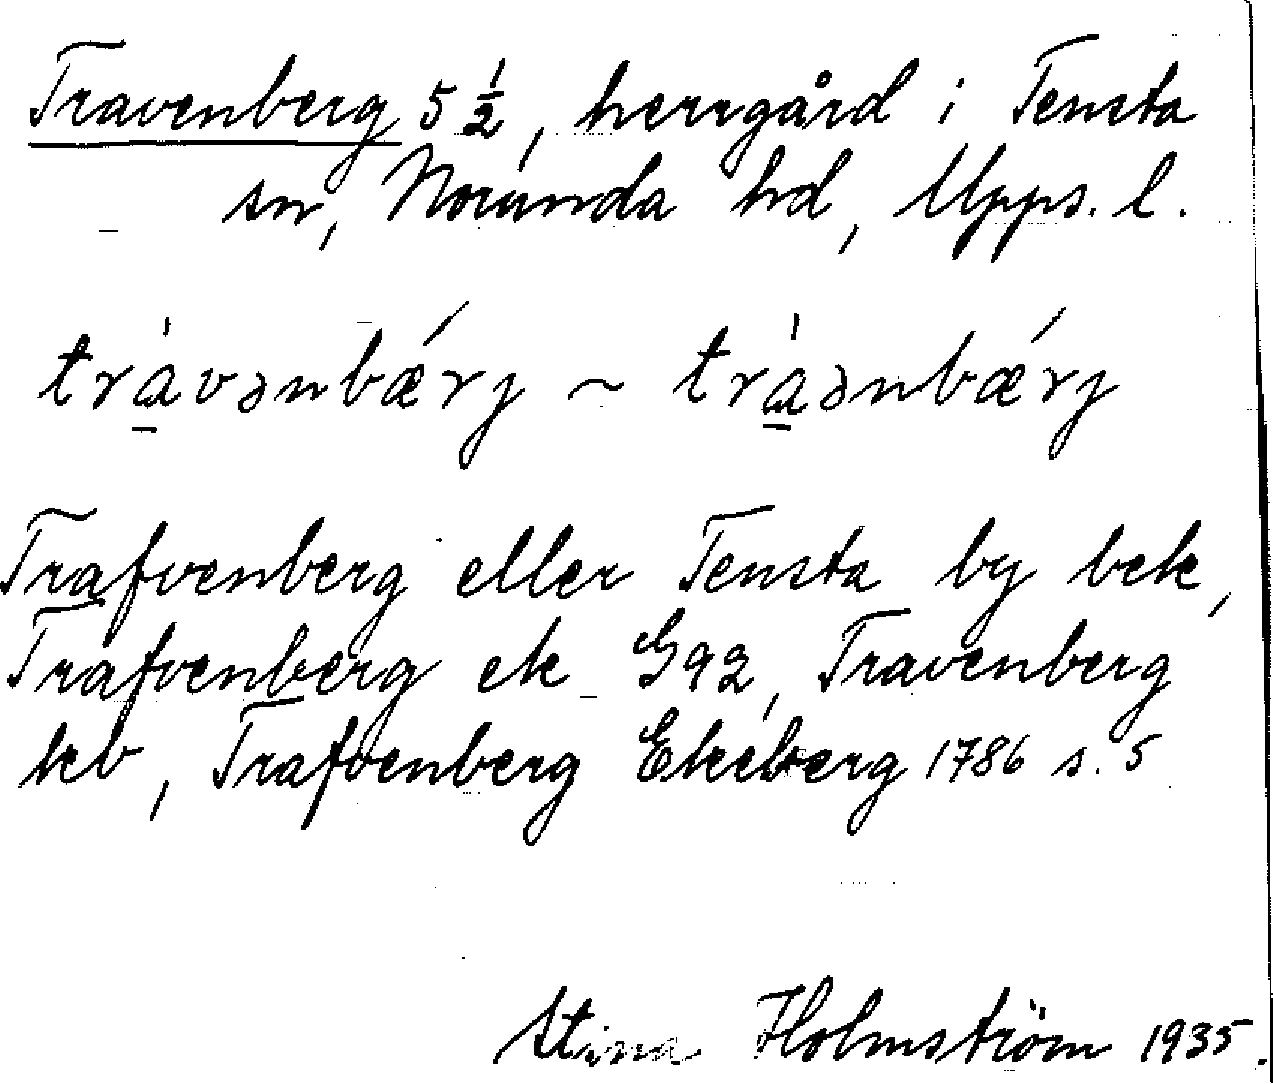 Travenberg 5 ½, herrgård i Tensta
sn, Norunda hd, Upps. l.
tràvənbǽrj ~ tràənbǽrj
Trafvenberg eller Tensta by bek,
Trafvenberg ek G92, Travenberg
kb, Trafvenberg Ekeberg 1786 s. 5
Stina Holmström 1935.